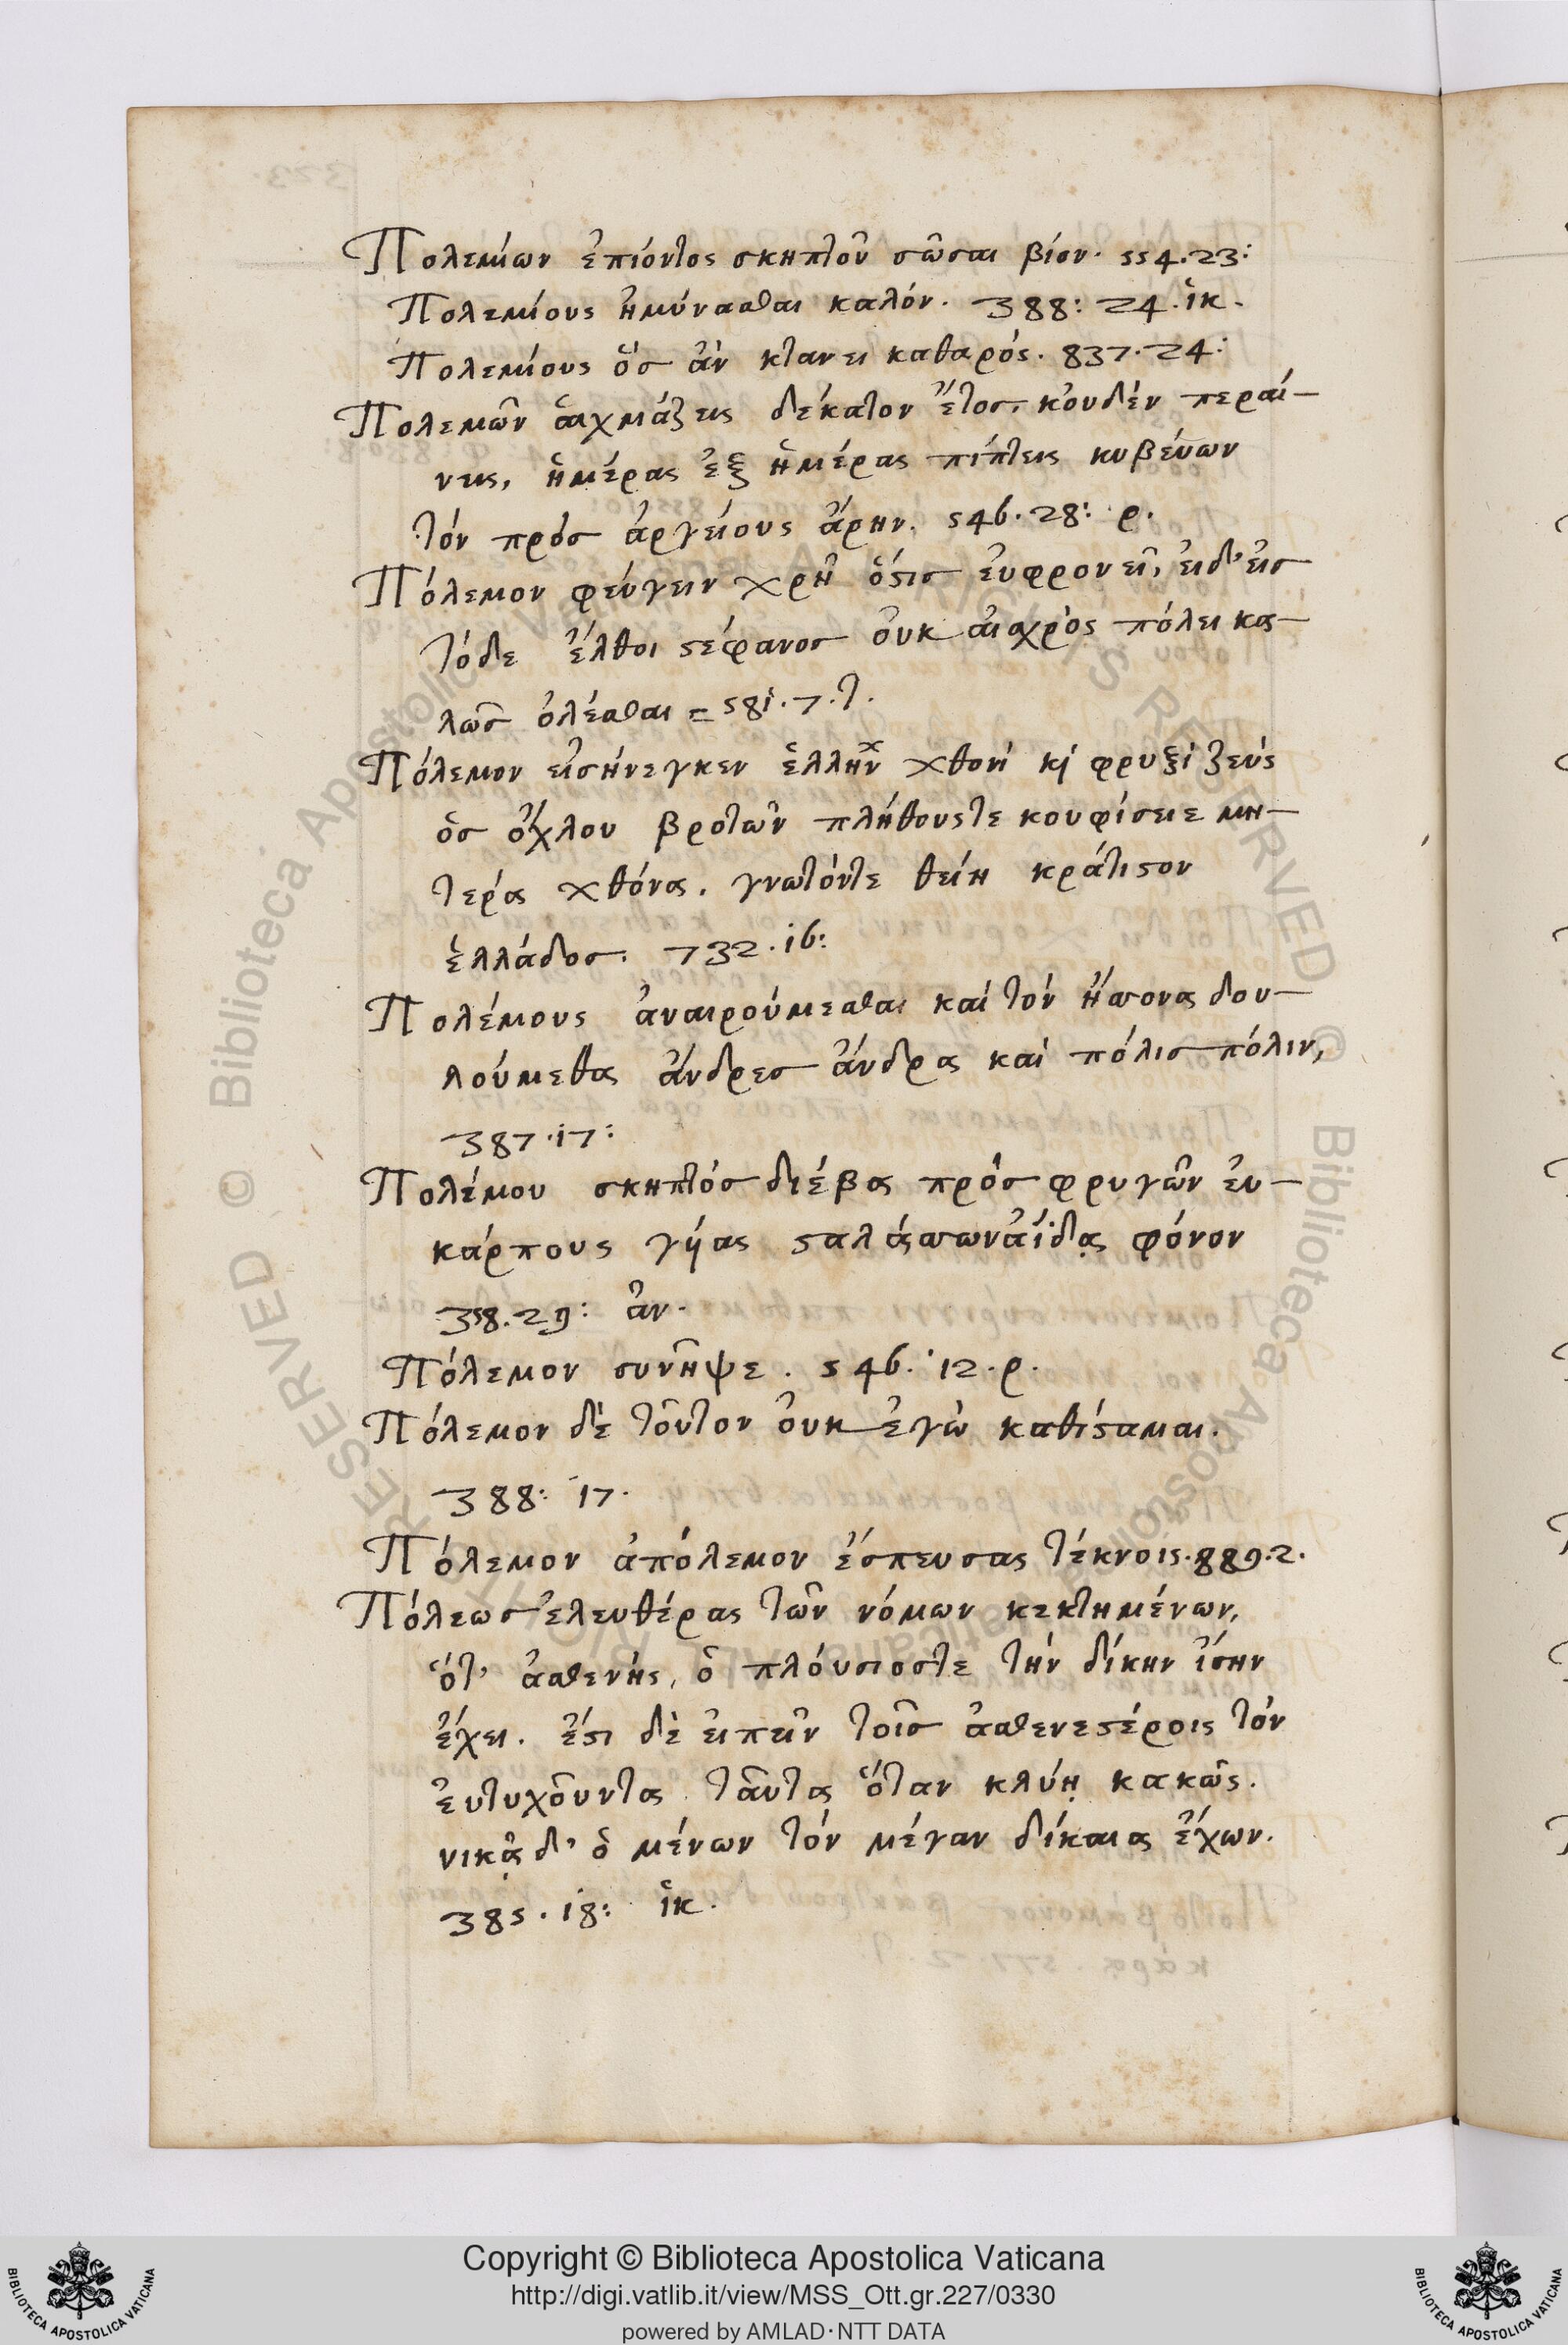 Πολεμίων ἐπιόντος σκηπτοῦ σῶσαι βίον. 554.23:
Πολεμίους ἠμύνασθαι καλόν. 388: 24. ἱκ.
Πολεμίους ὃσ ἂν κτανει καθαρός. 837.24:
Πολεμῶν αἰχμάζεις δέκατον ἔτος. κοὐδὲν περαί-
νεις, ἡμέρας ἐξ ἡμέρας πίπτεις κυβεύων
τόν πρὸσ ἀργείους ἄρην. 546.28: ρ.
Πόλεμον φεύγειν χρὴ ὅστισ ἐυφρονεῖ, ἐιδ' ἐισ
τόδε ἔλθοι στέφανοσ ὀυκ ἀισχρὸς πόλει κα-
λῶσ ὀλέσθαι = 581.7.τ.
Πόλεμον εἰσήνεγκεν ἑλλήν χθονὶ κὶ φρυξὶ ζεύς
ὡσ ὄχλου βροτῶν πλήθουστε κουφίσειε μη-
τερα χθόνα. γνωτόντε θείη κράτιστον
ἑλλάδοσ. 732.16:
Πολέμους ἀναιρούμεσθαι καὶ τόν ἥσσονα δου-
λούμεθα ἄνδρεσ ἄνδρα καὶ πόλισ πόλιν,
387.17:
Πολέμου σκηπτὸσ διέβα πρὸσ φρυγῶν ἐυ-
κάρπους γύας σταλάσσωνἀΐδᾳ φόνον
358.29: ἀν.
Πόλεμον συνῆψε. 546. 12. ρ.
Πόλεμον δὲ τοῦτον ὀυκ ἐγὼ καθίσταμαι.
388: 17.
Πόλεμον ἀπόλεμον ἔσπευσας τέκνοις. 889.2.
Πόλεωσ ἐλευθέρας τῶν νόμων κεκτημένων,
ὅτ' ἀσθενής, ὁ πλόυσιοστε τὴν δίκην ἴσην
ἔχει. ἔστι δὲ ἐιπεῖν τοῖσ ἀσθενεστέροις τὸν
ἐυτυχοῦντα ταῦτα ὅταν κλύῃ κακῶς.
νικᾷ δ' ὁ μένων τὸν μέγαν δίκαια ἔχων.
385.18: ἱκ.
Copyright © Biblioteca Apostolica Vaticana
http://digi.vatlib.it/view/MSS_Ott.gr.227/0330
powered by AMLAD·NTT DATA